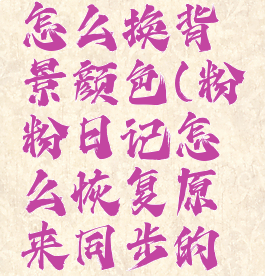 怎么换背
景颜色(粉
粉日记怎
么恢复原
来同步的